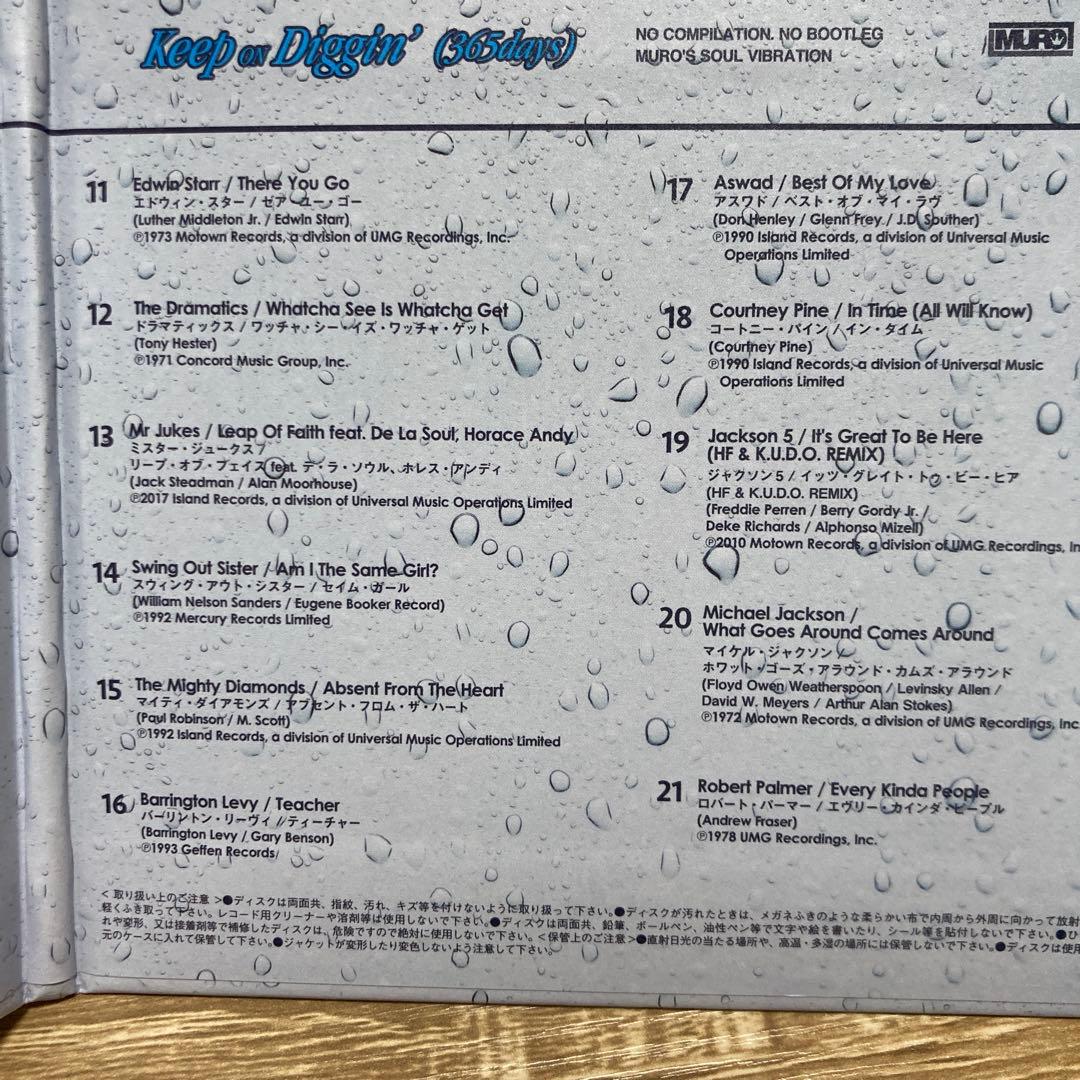 Keep ON Diggin' (365days)
NO COMPILATION. NO BOOTLEG
MURO'S SOUL VIBRATION
MURO
11 Edwin Starr / There You Go
エドウィン・スター / ゼア・ユー・ゴー
(Luther Middleton Jr. / Edwin Starr)
℗1973 Motown Records, a division of UMG Recordings, Inc.
12 The Dramatics / Whatcha See Is Whatcha Get
ドラマティックス / ワッチャ・シー・イズ・ワッチャ・ゲット
(Tony Hester)
℗1971 Concord Music Group, Inc.
13 Mr Jukes / Leap Of Faith feat. De La Soul, Horace Andy
ミスター・ジュークス /
リープ・オブ・フェイス feat. デ・ラ・ソウル、ホレス・アンディ
(Jack Steadman / Alan Moorhouse)
℗2017 Island Records, a division of Universal Music Operations Limited
14 Swing Out Sister / Am I The Same Girl?
スウィング・アウト・シスター / セイム・ガール
(William Nelson Sanders / Eugene Booker Record)
℗1992 Mercury Records Limited
15 The Mighty Diamonds / Absent From The Heart
マイティ・ダイアモンズ / アブセント・フロム・ザ・ハート
(Paul Robinson / M. Scott)
℗1992 Island Records, a division of Universal Music Operations Limited
16 Barrington Levy / Teacher
バーリントン・リーヴィ / ティーチャー
(Barrington Levy / Gary Benson)
℗1993 Geffen Records
17 Aswad / Best Of My Love
アスワド / ベスト・オブ・マイ・ラヴ
(Don Henley / Glenn Frey / J.D. Souther)
℗1990 Island Records, a division of Universal Music
Operations Limited
18 Courtney Pine / In Time (All Will Know)
コートニー・パイン / イン・タイム
(Courtney Pine)
℗1990 Island Records, a division of Universal Music
Operations Limited
19 Jackson 5 / It's Great To Be Here
(HF & K.U.D.O. REMIX)
ジャクソン5 / イッツ・グレイト・トゥ・ビー・ヒア
(HF & K.U.D.O. REMIX)
(Freddie Perren / Berry Gordy Jr. /
Deke Richards / Alphonso Mizell)
℗2010 Motown Records, a division of UMG Recordings, In
20 Michael Jackson /
What Goes Around Comes Around
マイケル・ジャクソン /
ホワット・ゴーズ・アラウンド・カムズ・アラウンド
(Floyd Owen Weatherspoon / Levinsky Allen /
David W. Meyers / Arthur Alan Stokes)
℗1972 Motown Records, a division of UMG Recordings, Inc
21 Robert Palmer / Every Kinda People
ロバート・パーマー / エヴリー・カインダ・ピープル
(Andrew Fraser)
℗1978 UMG Recordings, Inc.
< 取り扱い上のご注意 >●ディスクは両面共、指紋、汚れ、キズ等を付けないように取り扱って下さい。●ディスクが汚れたときは、メガネふきのような柔らかい布で内周から外周に向かって放射
軽くふき取って下さい。レコード用クリーナーや溶剤等は使用しないで下さい。●ディスクは両面共、鉛筆、ボールペン、油性ペン等で文字や絵を書いたり、シール等を貼付しないで下さい。●ひ
れや変形、又は接着剤等で補修したディスクは、危険ですので絶対に使用しないで下さい。<保管上のご注意>●直射日光の当たる場所や、高温・多湿の場所には保管しないで下さい。●ディスクは使用
元のケースに入れて保管して下さい。●ジャケットが変形したり変色しないよう注意して下さい。